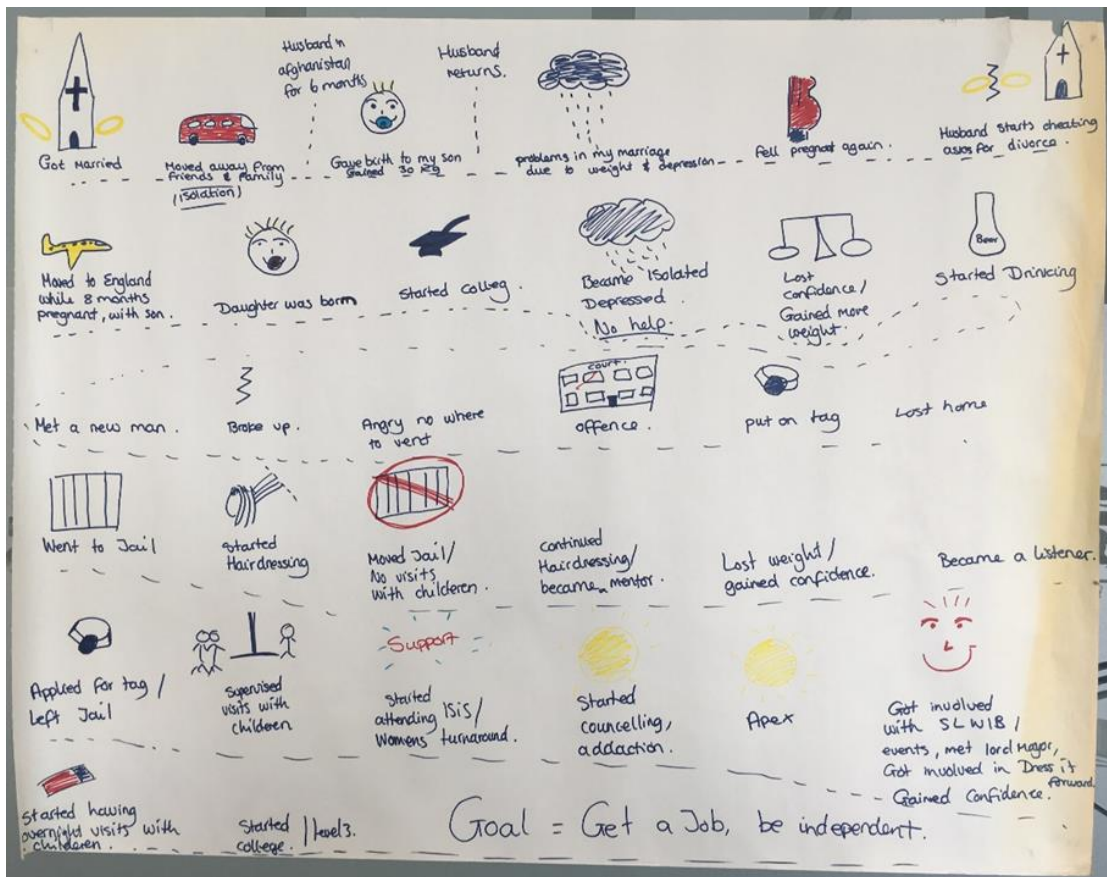 Husband in
afghanistan
for 6 months
Husband
returns.
Got Married
Moved away from
friends & family
(isolation)
Gave birth to my son
gained 30 kg
problems in my marriage
due to weight & depression
fell pregnant again.
Husband starts cheating
asks for divorce.
Moved to England
while 8 months
pregnant, with son.
Daughter was born
Started colleg.
Became isolated
Depressed.
No help.
Lost
confidence/
Gained more
weight.
Beer
Started Drinking
Met a new man.
Broke up.
Angry no where
to vent
court.
offence.
put on tag
Lost home
Went to Jail
Started
Hairdressing
Moved Jail/
No visits
with childeren.
Continued
Hairdressing/
became a mentor.
Lost weight/
gained confidence.
Became a Listener.
Applied for tag/
Left Jail
Supervised
visits with
children
Support
Started
attending ISIS/
Womens turnaround.
Started
councelling,
addaction.
Apex
Got involved
with SLWIB/
events, met lord Mayor,
Got involved in Dress it
forward.
Gained Confidence.
Started having
overnight visits with
childeren.
Started
college. / level 3.
Goal = Get a Job, be independent.